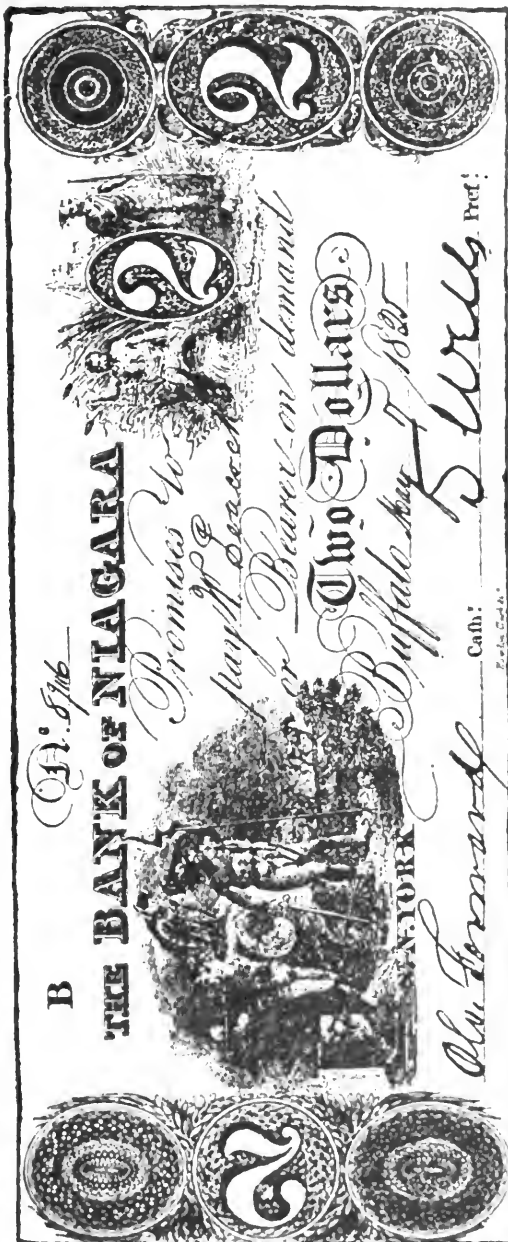 2
B
No. 8946
THE BANK OF NIAGARA
2
Promises to
pay W Peacock
or Bearer on demand
Two Dollars
Buffalo May 7 1825
ST. N.YORK
Cash.r
Pres.t
2